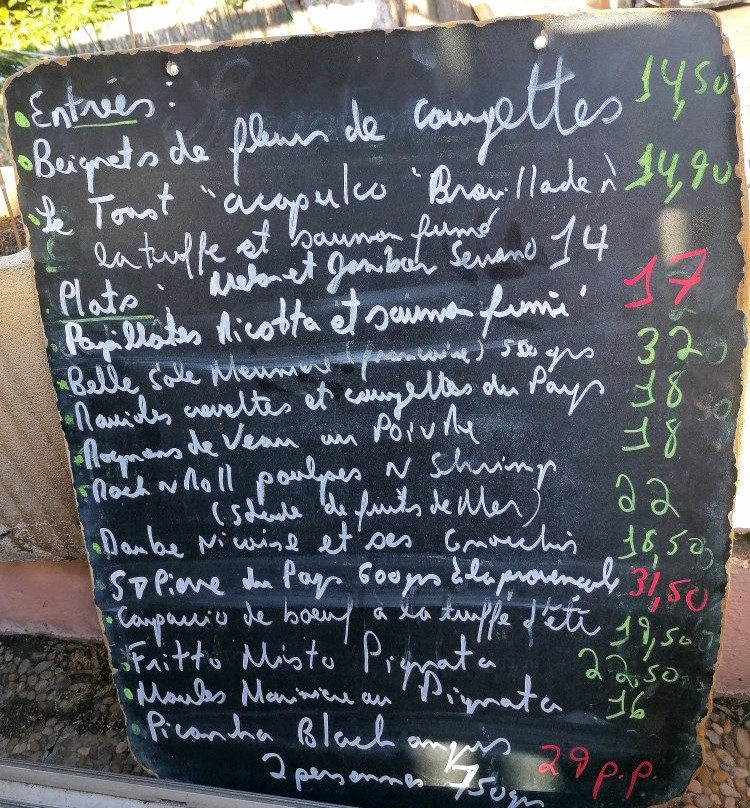 Entrées :
Beignets de fleurs de courgettes 14,50
Le Toast "acapulco" Brouillade à 14,90
la truffe et saumon fumé
Melon et Jambon Serrano 14
Plats :
Papillotes Ricotta et saumon fumé 17
Belle Sole Meunière (francaise) 500grs 32
Ravioles crevettes et courgettes du Pays 18
Rognons de Veau au Poivre 18
Rock N Roll poulpes N Shrimp 22
(Salade de fruits de Mer)
Daube Nicoise et ses Gnocchis 18,50
St Pierre du Pays 600grs à la provencale 31,50
Carpaccio de boeuf a la truffe d'été 19,50
Fritto Misto Pignata 22,50
Moules Marinière au Pignata 16
Picanha Black angus
2 personnes 750grs 29 p.p.